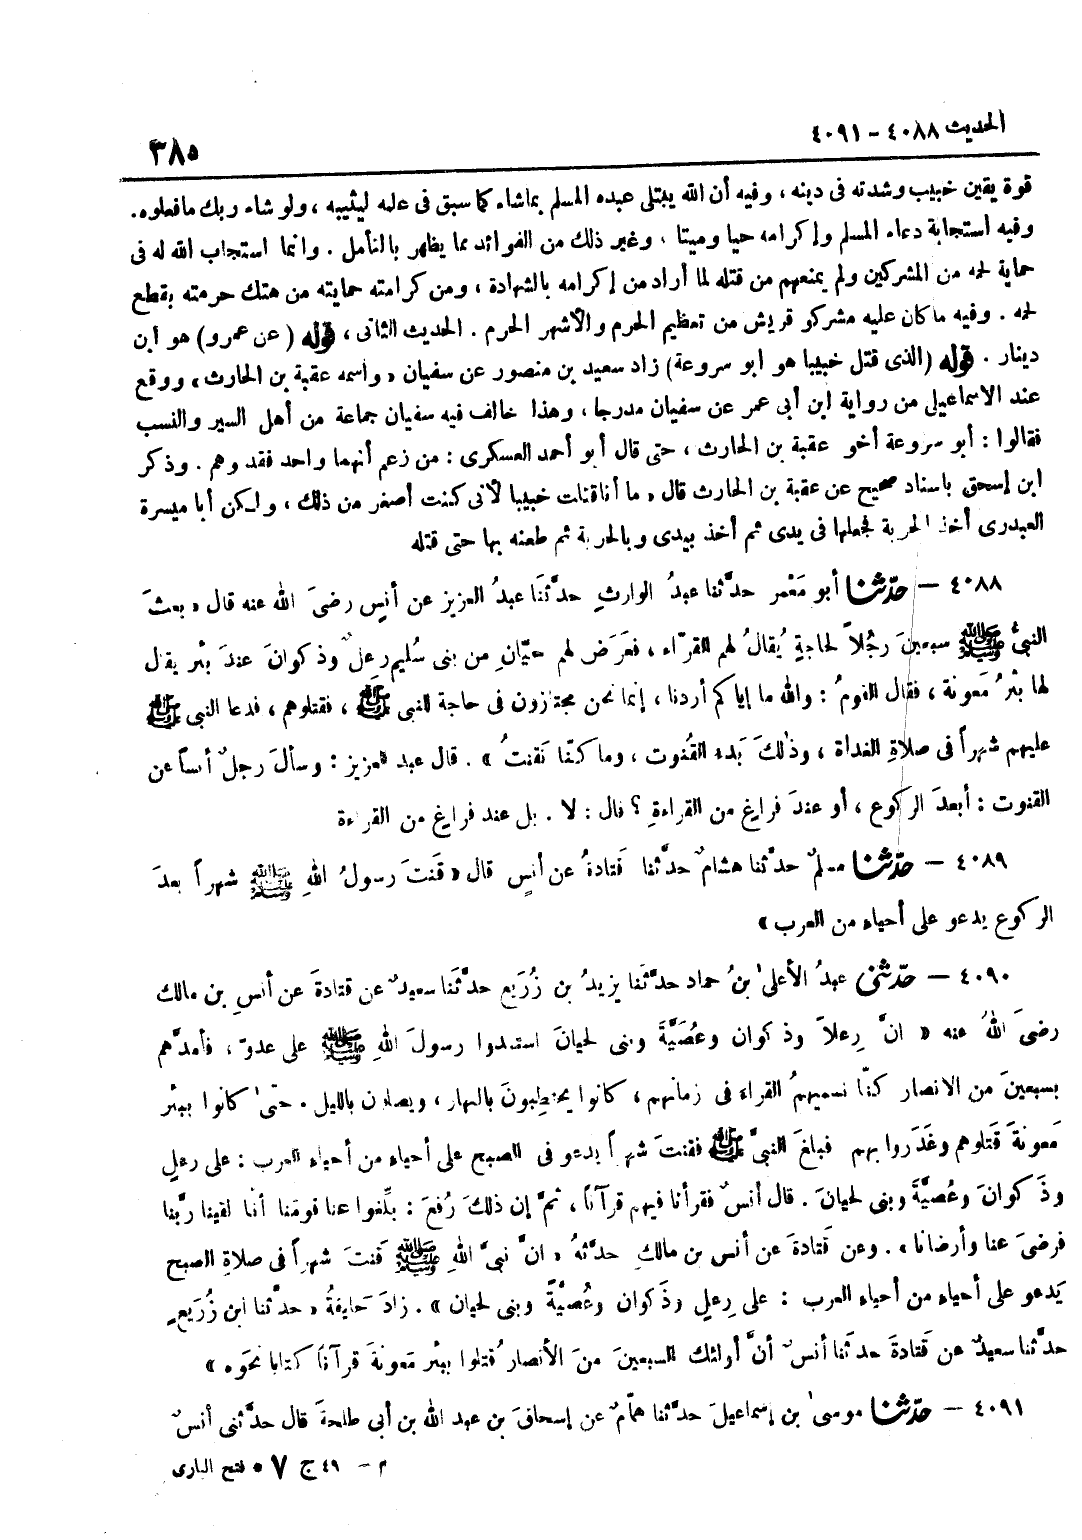 الحديث ٤٠٨٨ - ٤٠٩١
٣٨٥
قوة يقين خبيب وشدته فى دينه ، وفيه أن الله يبتلى عبده المسلم بماشاء كما سبق فى علمه ليثيبه ، ولو شاء ربك مافعلوه .
وفيه استجابة دعاء المسلم وإكرامه حيا وميتا ، وغير ذلك من الفوائد مما يظهر بالتأمل . وانما استجاب الله له فى
حماية لحمه من المشركين ولم يمنعهم من قتله لما أراد من إكرامه بالشهادة ، ومن كرامته حمايته من هتك حرمته بقطع
لحمه . وفيه ما كان عليه مشركو قريش من تعظيم الحرم والأشهر الحرم . الحديث الثانى ، قوله ( عن عمرو ) هو ابن
دينار . قوله (الذى قتل خبيبا هو ابو سروعة) زاد سعيد بن منصور عن سفيان « واسمه عقبة بن الحارث » ووقع
عند الاسماعيلى من رواية ابن أبى عمر عن سفيان مدرجا ، وهذا خالف فيه سفيان جماعة من أهل السير والنسب
فقالوا : أبو سروعة أخو عقبة بن الحارث ، حتى قال أبو أحمد العسكرى : من زعم أنهما واحد فقد وهم . وذكر
ابن إسحق باسناد صحيح عن عقبة بن الحارث قال « ما أنا قتلت خبيبا لأنى كنت أصغر من ذلك ، ولكن أبا ميسرة
العبدرى أخذ الحربة فجعلها فى يدى ثم أخذ بيدى وبالحربة ثم طعنه بها حتى قتله
٤٠٨٨ - حدّثنا أبو مَعْمر حدَّثنا عبدُ الوارثِ حدَّثنَا عبدُ العزيز عن أنسٍ رضىَ اللهُ عنه قال « بعثَ
النبىُّ ﷺ سبعينَ رجُلاً لحاجةٍ يُقالُ لهم القرّاء ، فعَرَض لهم حيّانِ من بنى سُليم رعلٌ وذكوانَ عندَ بئر يقال
لها بئرُ مَعونة ، فقال القومُ : والله ما إياكم أردنا ، إنما نحن مجتازون فى حاجة للنبى ﷺ ، فقتلوهم ، فدعا النبى ﷺ
عليهم شهراً فى صلاةِ الغداة ، وذٰلكَ بَدء القُنوت ، وما كنّا نَقنتُ » . قال عبد العزيز : وسألَ رجلٌ أنساً عن
القنوت : أبعدَ الركوع ، أو عندَ فراغٍ من القراءةِ ؟ قال : لا . بل عند فراغٍ من القراءة
٤٠٨٩ - حدّثنا مسلمٌ حدَّثنا هشامٌ حدَّثنا قَتادةُ عن أنسٍ قال « قَنتَ رسولُ اللهِ ﷺ شهراً بعدَ
الركوع يدعو على أحياءٍ من العرب »
٤٠٩٠ - حدّثنى عبدُ الأعلىٰ بنُ حماد حدَّثنَا يزيدُ بن زُرَيع حدَّثنَا سعيدٌ عن قتادةَ عن أنسِ بن مالك
رضىَ اللهُ عنه « انَّ رِعلاً وذكوان وعُصَيَّةَ وبنى لحيانَ استمدوا رسولَ اللهِ ﷺ على عدوّ ، فأمدَّهم
بسبعينَ من الانصار كنّا نسميهمُ القراءَ فى زمانهم ، كانوا يحتطِبونَ بالنهار ، ويصلون بالليل . حتىٰ كانوا ببئر
مَعونةَ قَتلوهم وغَدَروا بهم فبلغَ النبىَّ ﷺ فقنتَ شهراً يدعو فى الصبح على أحياءٍ من أحياء العرب : على رعلٍ
وذَكوانَ وعُصيَّةَ وبنى لحيانَ . قال أنسٌ فقرأنا فيهم قرآناً ، ثمَّ إن ذلكَ رُفعَ : بلِّغوا عنا قومَنا أنّا لقينا ربَّنا
فرضىَ عنا وأرضانا » . وعن قَتادةَ عن أنس بن مالكٍ حدَّثهُ « انَّ نبىَّ اللهِ ﷺ قَنتَ شهراً فى صلاةِ الصبح
يَدعو على أحياءٍ من أحياء العرب : على رِعلٍ وذَكوان وعُصيَّةَ وبنى لحيان » . زادَ خليفةُ « حدَّثنا ابن زُرَيعٍ
حدَّثنا سعيدٌ عن قَتادةَ حدثنا أنسٌ أنَّ أولئك السبعينَ منَ الأنصار قُتلوا ببئر مَعونةَ قرآناً كتابا نحوَه »
٤٠٩١ - حدّثنا موسىٰ بن إسماعيلَ حدَّثنا همّامٌ عن إسحاقَ بن عبد الله بن أبى طلحةَ قال حدَّثنى أنسٌ
م - ٤٩ ج ٧ ٭ فتح البارى